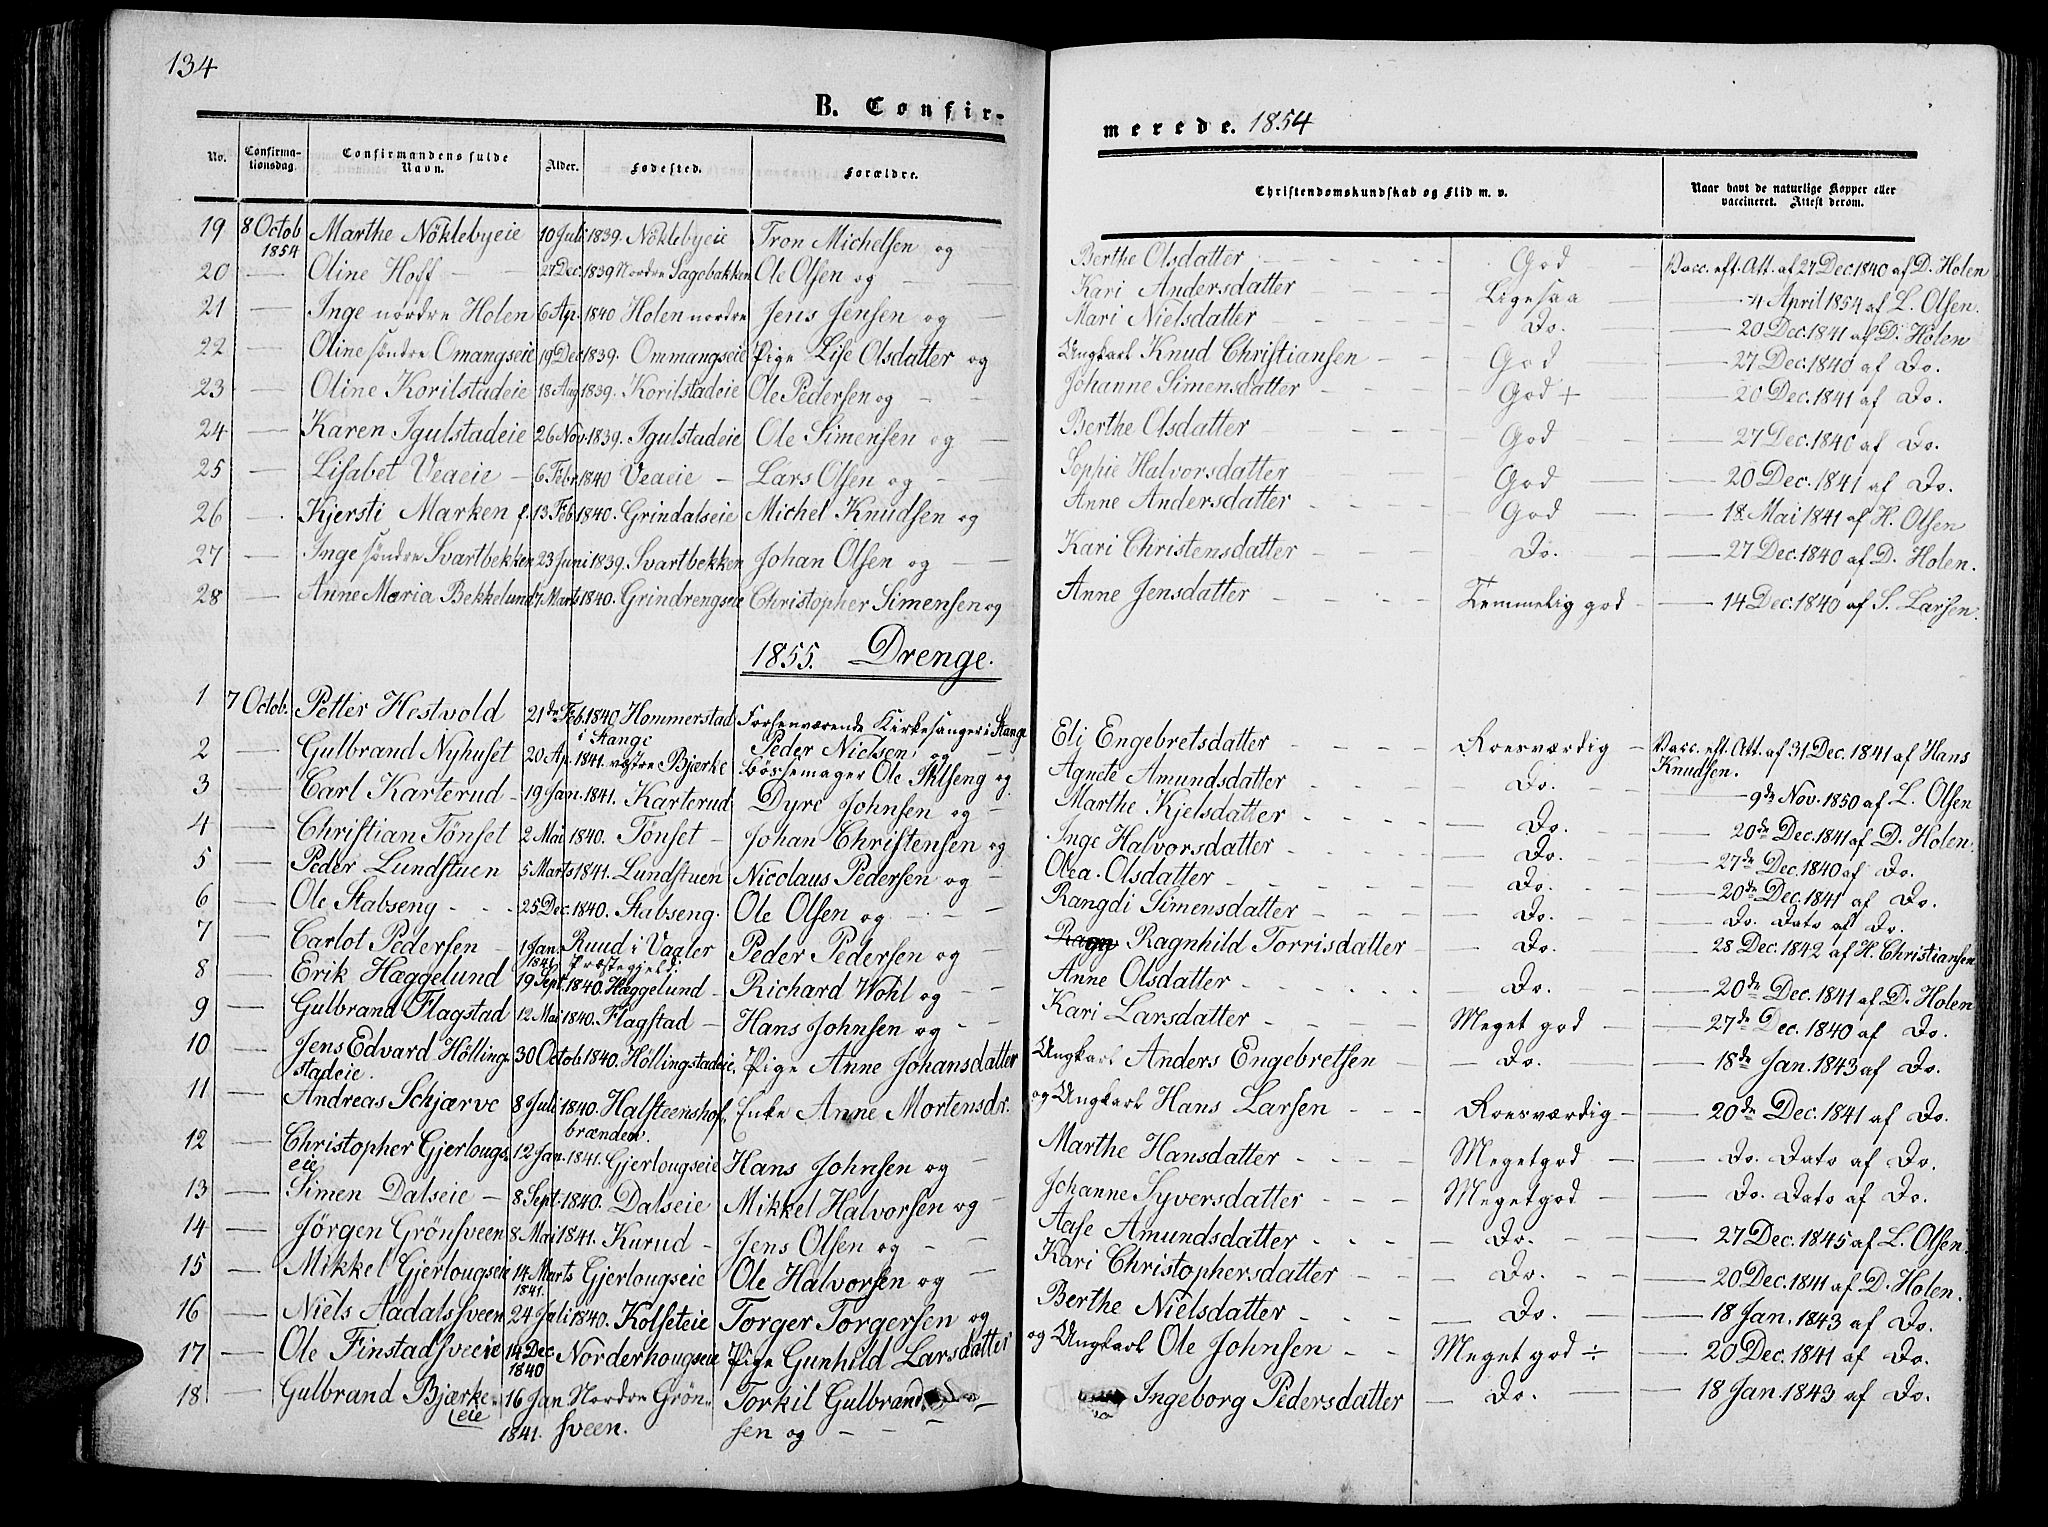 134
B. Confir-
No. Confirma- tionsdag. Confirmandens fulde Navn. Alder. Fødested. Forældre.
19 8 Octob 1854 Marthe Nöklebyeie 10 Juli 1839. Nöklebyeie Tron Michelsen og
20 — Oline Hoff — 27 Dec. 1839 Nordre Sagebakken Ole Olsen og —
21 — Inge nordre Holen 6 Ap. 1840 Holen nordre Jens Jensen og —
22 — Oline søndre Omangseie 19 Dec 1839. Ommangseie Pige Lise Olsdatter og
23 — Oline Korilstadeie 18 Aug 1839. Korilstadeie Ole Pedersen og —
24 — Karen Igulstadeie 26 Nov. 1839. Igulstadeie Ole Simensen og —
25 — Lisabet Veaeie — 6 Febr 1840 Veaeie — Lars Olsen og —
26 — Kjersti Marken f. 13 Feb 1840. Grindalseie Michel Knudsen og
27 — Inge søndre Svartbekken 23 Juni 1839. Svartbekken Johan Olsen og —
28 — Anne Maria Bekkelund 7 Marts 1840. Grindrengseie Christopher Simensen og
1855. Drenge.
1 7 Octob. Petter Hestvold 21de Feb. 1840 Hommerstad i Stange Forhenværende Kirkesanger i Stange Peder Nielsen og —
2 — Gulbrand Nyhuset 20 Ap. 1841. vestre Bjerke Bössemager Ole Ilseng og
3 — Carl Karterud — 19 Jan. 1841. Karterud Dyre Johnsen og —
4 — Christian Tönset 2 Mai 1840. Tönset — Johan Christensen og
5 — Peder Lundstuen 5 Marts 1841. Lundstuen Nicolaus Pedersen og —
6 — Ole Stabseng - - 25 Dec. 1840. Stabseng. Ole Olsen og —
7 — Carlot Pedersen — 1 Jan 1841. Ruud i Vagler Præstegjeld. Peder Pedersen og
8 — Erik Hæggelund 19 Sept. 1840. Hæggelund — Richard Wohl og —
9 — Gulbrand Flagstad 12 Mai 1840. Flagstad — Hans Johnsen og —
10 — Jens Edvard Hölling- stadeie. 30 Octob 1840. Höllingstadeie, Pige Anne Johansdatter
11 — Andreas Schjærve 8 Juli 1840. Halsteenshof brænden. Enke Anne Mortensdr.
12 — Christopher Gjerlougs- eie 12 Jan. 1841. Gjerlougseie Hans Johnsen og —
13 — Simen Dalseie — 8 Sept. 1840. Dalseie — Mikkel Halvorsen og
14 — Jørgen Grönsveen 8 Mai 1841. Kurud — Jens Olsen og —
15 — Mikkel Gjerlougseie 14 Marts 1841. Gjerlougseie Ole Halvorsen og —
16 — Niels Aadalssveen 24 Juli 1840. Kolseteie Torger Torgersen og
17 — Ole Finstadsveeie 14 Dec. 1840 Norderhougseie Pige Gunhild Larsdatter
18 — Gulbrand Bjærke- eie 16 Jan 1841. Nordre Grön- sveen. Torkil Gulbrand- sen og —
merede. 1854
Christendomskundskab og Flid m. v. Naar havt de naturlige Kopper eller vaccineret. Attest derom.
Berthe Olsdatter God Vacc. eft. Att. af 27 Dec. 1840 af D. Holen
Kari Andersdatter Ligesaa — 4 April 1854 af L. Olsen.
Mari Nielsdatter Do. — 20 Dec. 1841 af D. Holen
Ungkarl Knud Christiansen God — 27 Dec. 1840 af Do.
Johanne Simensdatter God + — 20 Dec. 1841 af Do.
Berthe Olsdatter God — 27 Dec. 1840 af Do.
Sophie Halvorsdatter God — 20 Dec. 1841 af Do.
Anne Andersdatter God — 18 Mai 1841 af H. Olsen
Kari Christensdatter Do. — 27 Dec. 1840 af D. Holen.
Anne Jensdatter Temmelig god — 14 Dec. 1840 af S. Larsen.
Eli Engebretsdatter Roesværdig — Vacc. eft. Att. af 31 Dec. 1841 af Hans Knudsen.
Agnete Amundsdatter Do. — 9de Nov. 1850 af L. Olsen
Marthe Kjelsdatter Do. — 20de Dec. 1841 af D. Holen.
Inge Halvorsdatter Do. — 27de Dec. 1840 af Do.
Olea Olsdatter Do. — 20de Dec. 1841 af Do.
Rangdi Simensdatter Do. — Do. Dato af Do.
Ragnhild Torrisdatter Do. — 28 Dec. 1842 af H. Christiansen
Anne Olsdatter Do. — 20de Dec. 1841 af D. Holen
Kari Larsdatter Meget god — 27de Dec. 1840 af Do.
Ungkarl Anders Engebretsen Do. — 18de Jan. 1843 af Do.
og Ungkarl Hans Larsen Roesværdig — 20de Dec. 1841 af Do.
Marthe Hansdatter Meget god — Do. Dato af Do.
Johanne Syversdatter Meget god — Do. Dato af Do.
Aase Amundsdatter Do. — 27 Dec. 1845 af L. Olsen.
Kari Christophersdatter Do. — 20 Dec. 1841 af D. Holen.
Berthe Nielsdatter Do. — 18 Jan. 1843 af Do.
og Ungkarl Ole Johnsen Meget god ÷ — 20 Dec. 1841 af Do.
Ingeborg Pedersdatter — Do. — 18 Jan. 1843 af Do.